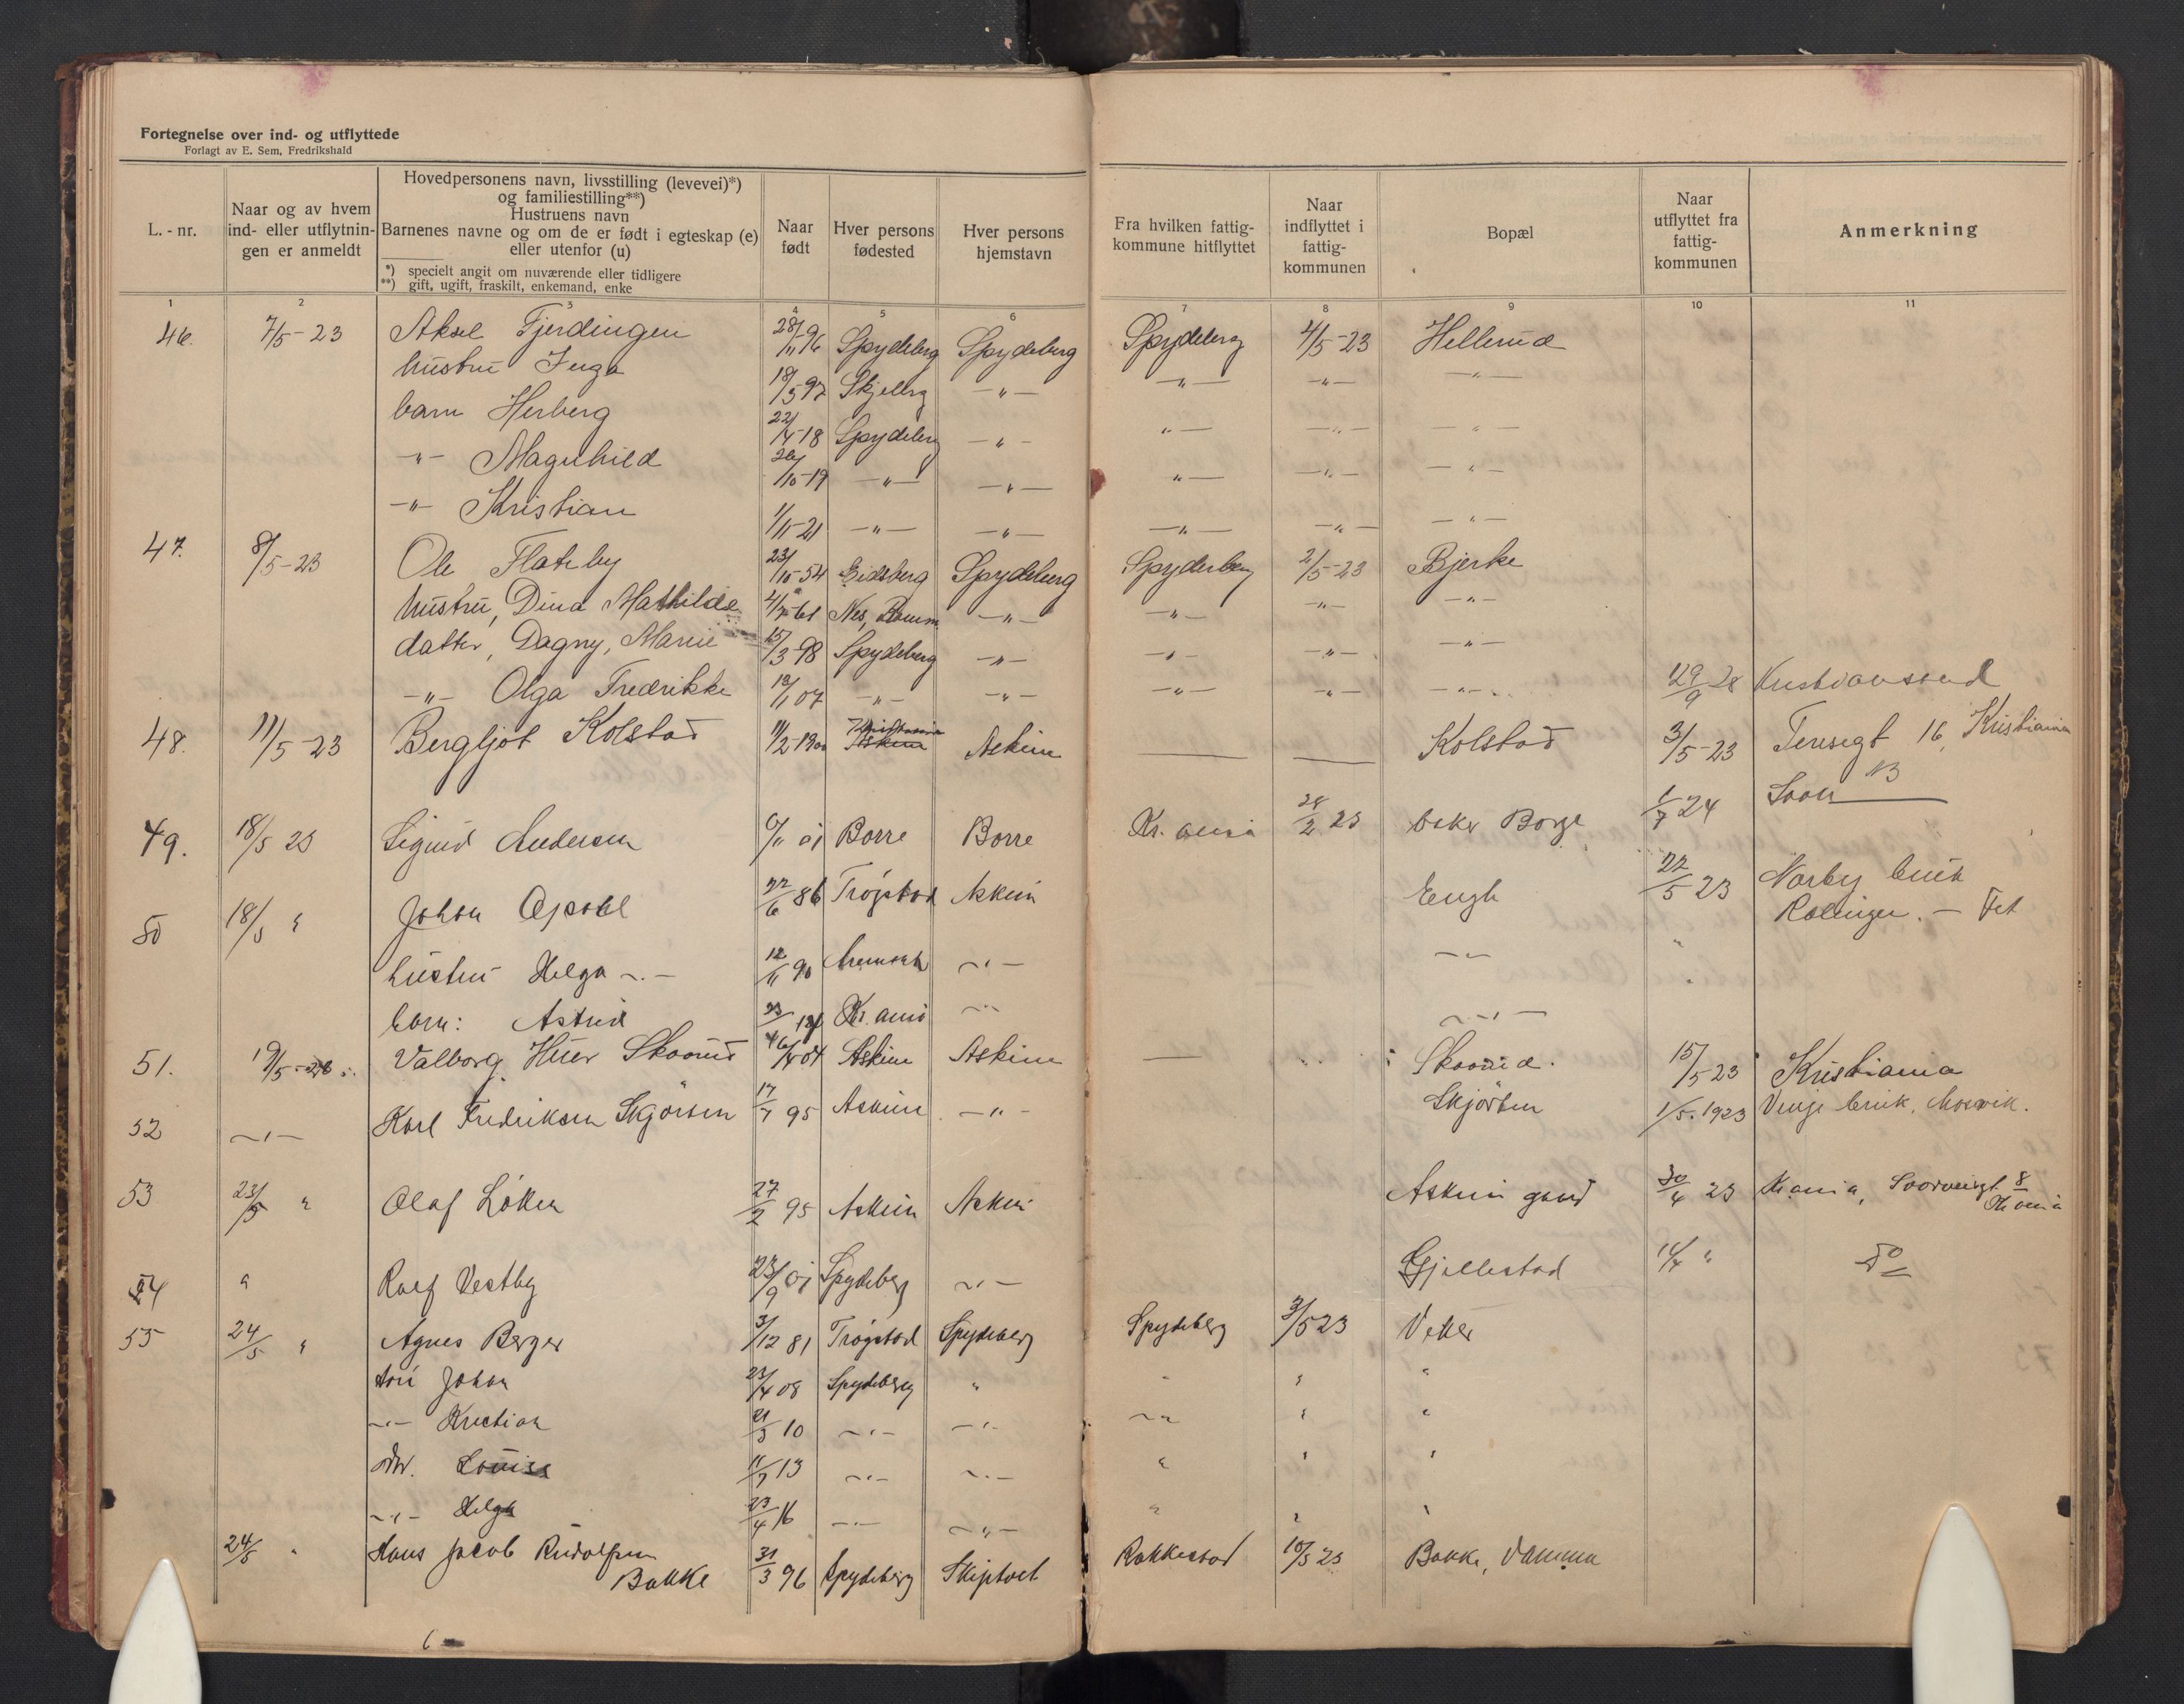 Fortegnelse over ind- og utflyttede
Forlagt av E. Sem, Fredrikshald
L. - nr.
Naar og av hvem ind- eller utflytningen er anmeldt
Hovedpersonens navn, livsstilling (levevei)*)
og familiestilling**)
Hustruens navn
Barnenes navne og om de er født i egteskap (e)
eller utenfor (u)
*) specielt angit om nuværende eller tidligere
**) gift, ugift, fraskilt, enkemand, enke
Naar født
Hver persons fødested
Hver persons hjemstavn
Fra hvilken fattigkommune hitflyttet
Naar indflyttet i fattigkommunen
Bopæl
Naar utflyttet fra fattigkommunen
Anmerkning
1 2 3 4 5 6 7 8 9 10 11
46. 7/5-23 Aksel Fjerdingen 28/11 96 Spydeberg Spydeberg Spydeberg 4/5-23 Hellerud
hustru Inga 18/5 97 Skjeberg -"- -"- -"- -"-
barn Herberg 22/4-18 Spydeberg -"- "- -"- -"-
-"- Magnhild 26/10-19 -"- -"- "- -"- -"-
-"- Kristian 1/11-21 -"- -"- -"- -"- -"-
47. 8/5-23 Ole Flateby 23/10-54 Eidsberg Spydeberg Spydeberg 2/5-23 Bjerke
hustru, Dina Mathilde 4/7-61 Nes, -"- -"- -"- -"-
datter, Dagny, Marie 15/3-98 Spydeberg -"- -"- -"- -"-
-"- Olga Fredrikke 12/11 07 -"- -"- -"- -"- -"- 29/9 28 Kristiansund
48. 11/5-23 Bergljot Kolstad 11/2-1900 Kristiania Askim Askim — — Kolstad 3/5-23 Teresegt 16, Kristiania
49. 18/5 23 Sigurd Andersen 6/11 01 Borre Borre Kr.ania 28/2 23 Borge 1/7 24 Soon
50 18/5 " Johan Opsahl 22/6 86 Trøgstad Askim Engh 27/5 23 Norby bruk
Rælingen. - Fet
hustru Helga -"- 12/11 90 Aremark -"- -"- "
barn: Astrid 23/ Kr.ania -"- -"-
51. 19/5-23 Valborg Huer Skovrud /4 04 Askim Askim — Skovrud. 15/5 23 Kristiania
52 -"- Karl Fredriksen Skjørten 17/7 95 Askim -"- Skjørten 1/5.1923 Venje bruk, Mosvik.
53 23/5 " Olaf Løken 27/2 95 Askim Askim Askim gaard 30/4 23 Kr.ania, 8
Kr.ania
54 " Rolf Vestby 23/9 01 Spydeberg -"- Gjellestad 14/4 " Do
55 24/5 " Agnes Berger 3/12 81 Trøgstad Spydeberg Spydeberg 3/5 23 Veker
søn Johan 23/4 08 Spydeberg " " " "
-"- Kristian 21/3 10 -"- -"- -"- " "
dtr. Louise 11/7 13 -"- -"- " " "
-"- Helga 23/4 16 -"- -"- " " "
24/5 " Hans Jacob Rudolfsen
Bakke 31/3 96 Spydeberg Skiptvet Rakkestad 10/5 23 Bakke, Vamma